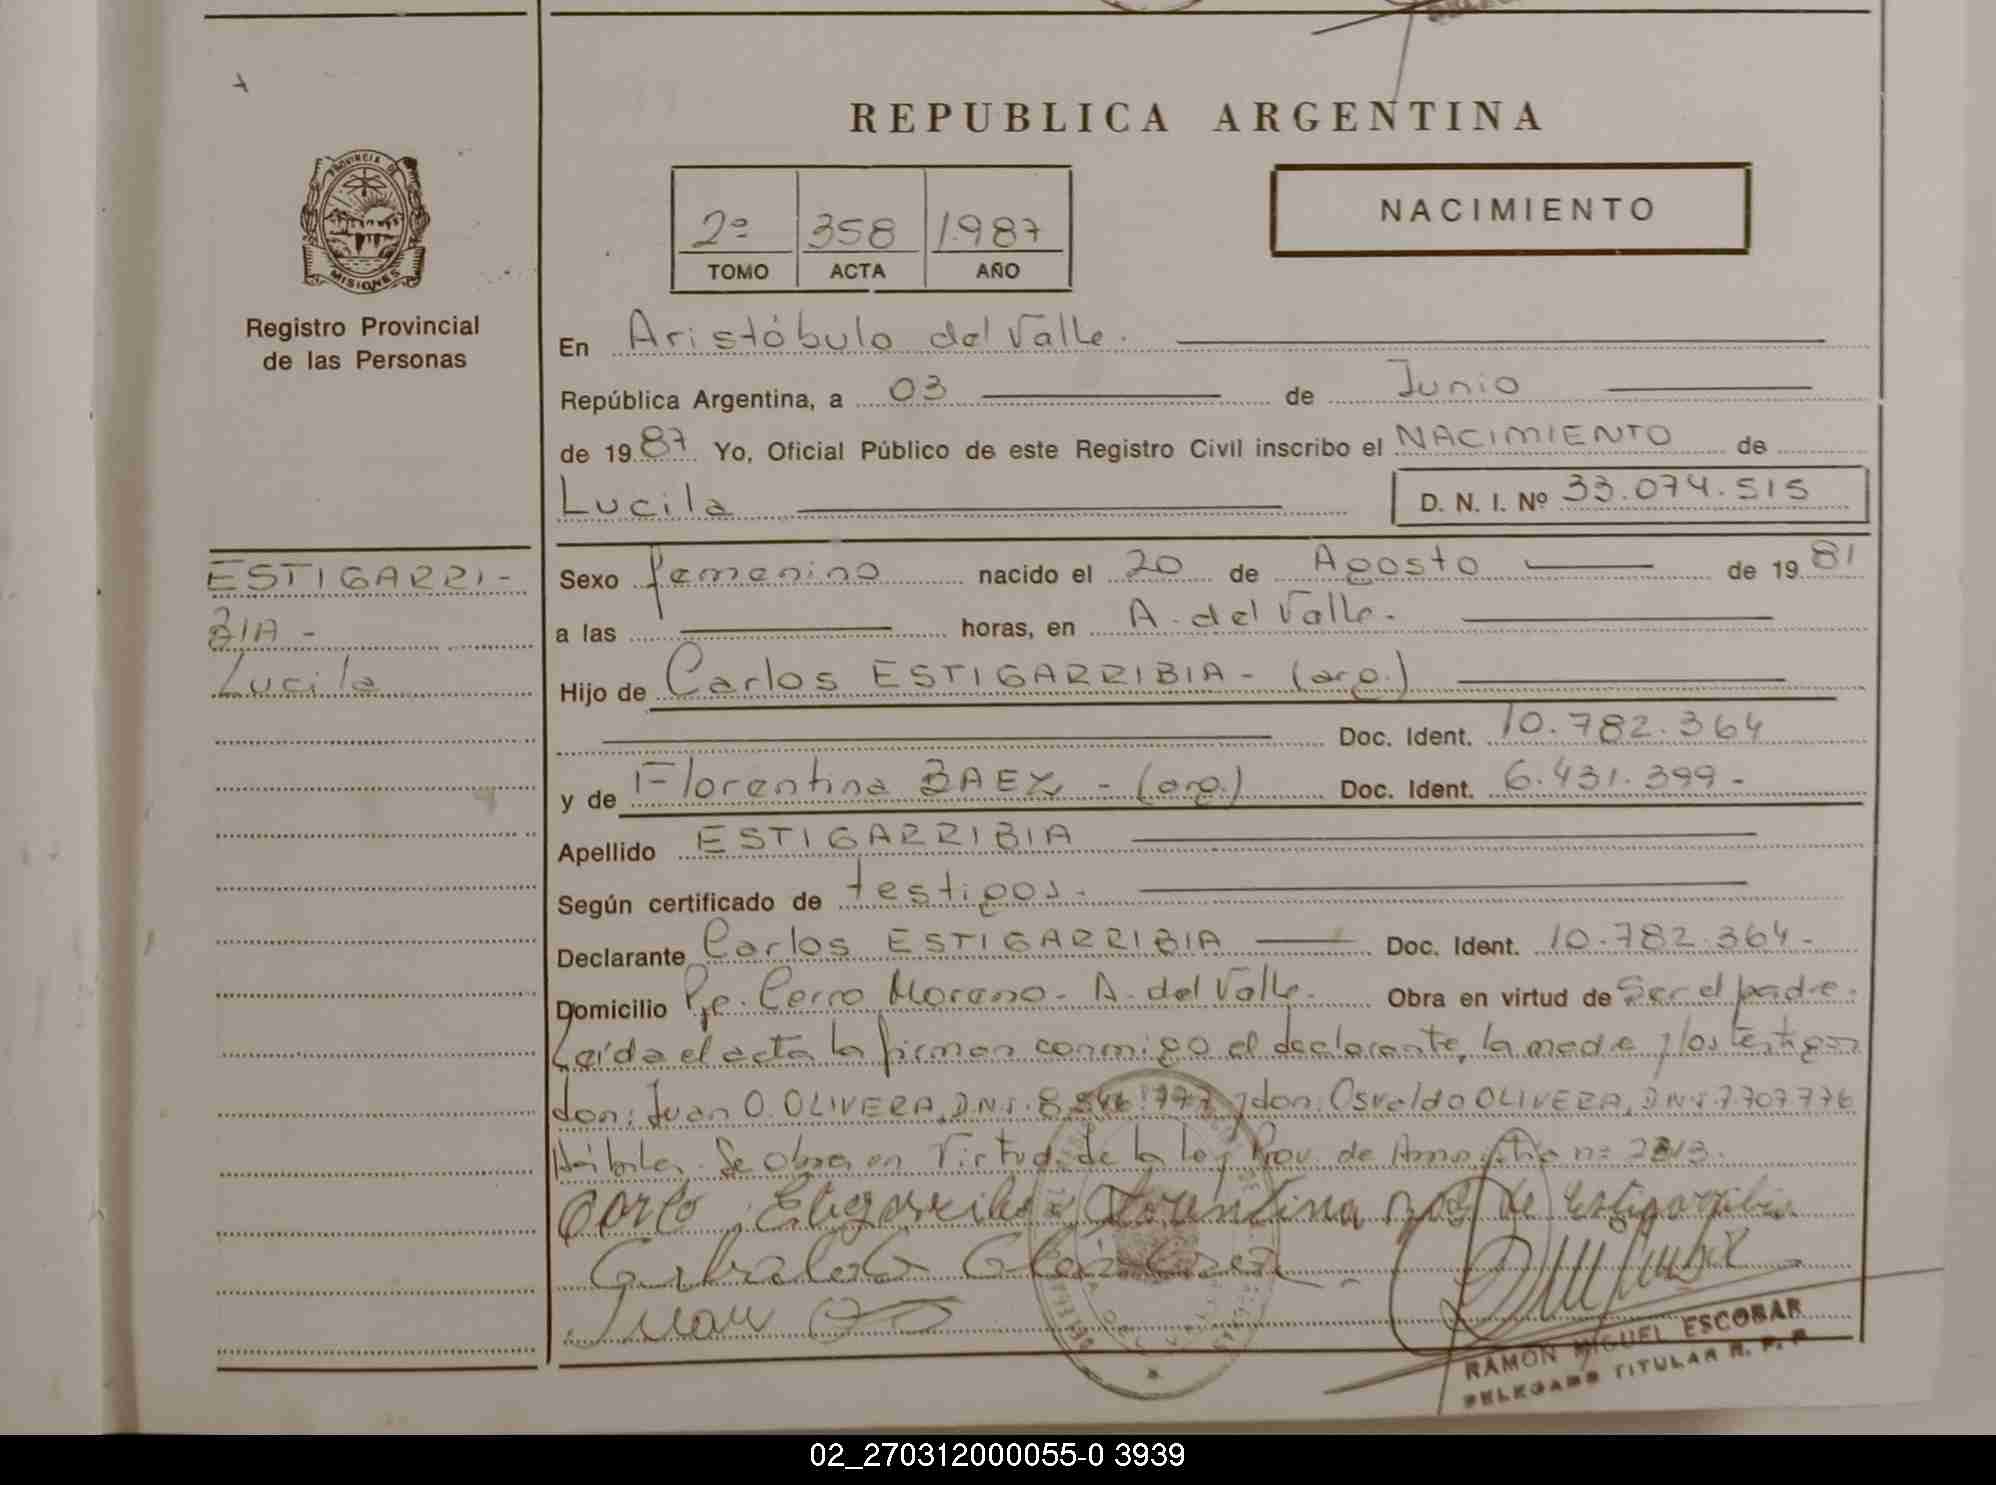 REPUBLICA ARGENTINA
PROVINCIA DE
MISIONES
Registro Provincial
de las Personas
2º 358 1987
TOMO ACTA AÑO
NACIMIENTO
En Aristóbulo del Valle.
República Argentina, a 03 de Junio
de 1987 Yo, Oficial Público de este Registro Civil inscribo el NACIMIENTO de
Lucila D. N. I. Nº 33.074.515
ESTIGARRI-
BIA-
Lucila
Sexo femenino nacido el 20 de Agosto de 1981
a las horas, en A. del Valle.
Hijo de Carlos ESTIGARRIBIA - (arg.)
Doc. Ident. 10.782.364
y de Florentina BAEZ - (arg.) Doc. Ident. 6.431.399-
Apellido ESTIGARRIBIA
Según certificado de testigos.
Declarante Carlos ESTIGARRIBIA Doc. Ident. 10.782.364-
Domicilio Pje. Cerro Moreno - A. del Valle. Obra en virtud de Ser el padre.
Leída el acta la firman conmigo el declarante, la madre y los testigos
don: Juan O. OLIVERA, D.N.I. y don: Osvaldo OLIVERA, D.N.I. 7.707.776
Hábiles. Se obra en Virtud de la ley Prov. de Amnistía nº
Florentina de Estigarribia
Juan
RAMON MIGUEL ESCOBAR
DELEGADO TITULAR R. P. P.
02_270312000055-0 3939